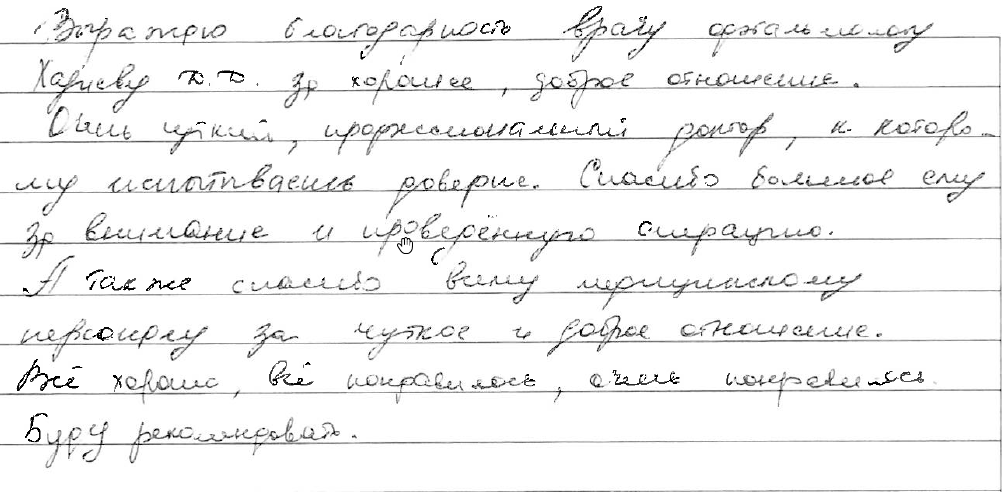 Выражаю благодарность врачу офтальмологу
Д.Д. за хорошее, доброе отношение.
Очень чуткий, профессиональный доктор, к которо-
му испытываешь доверие. Спасибо большое ему
за внимание и проверённую операцию.
А также спасибо всему медицинскому
персоналу за чуткое и доброе отношение.
Всё хорошо, всё понравилось, очень понравилось.
Буду рекомендовать.